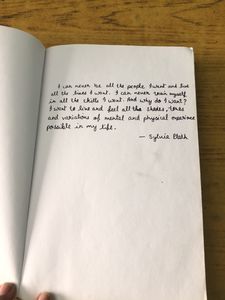 I can never be all the people I want and live
all the lives I want. I can never train myself
in all the skills I want. And why do I want?
I want to live and feel all the shades, tones
and variations of mental and physical experience
possible in my life.
— Sylvia Plath